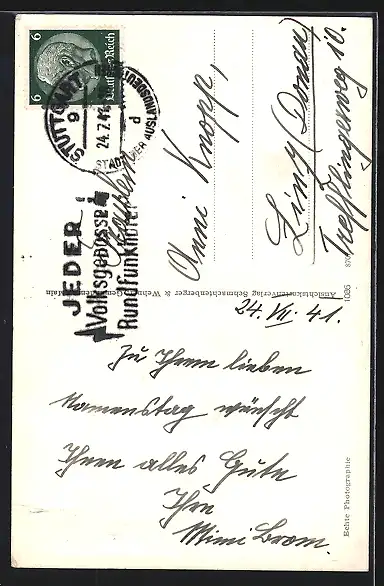 6
Deutsches Reich
6
STUTTGART 9
24.7.41
d
STADT DER AUSLANDSDEUTSCHEN
JEDER
Volksgenosse
Rundfunkhörer
Fräulein
Anni Knopp,
Linz (Donau)
Trefflingerweg 10.
Ansichtskartenverlag Schmachtenberger &
1036
24. VII. 41.
Zu Ihrem lieben
Namenstag wünscht
Ihnen alles Gute
Ihre
Mimi Brom.
Echte Photographie